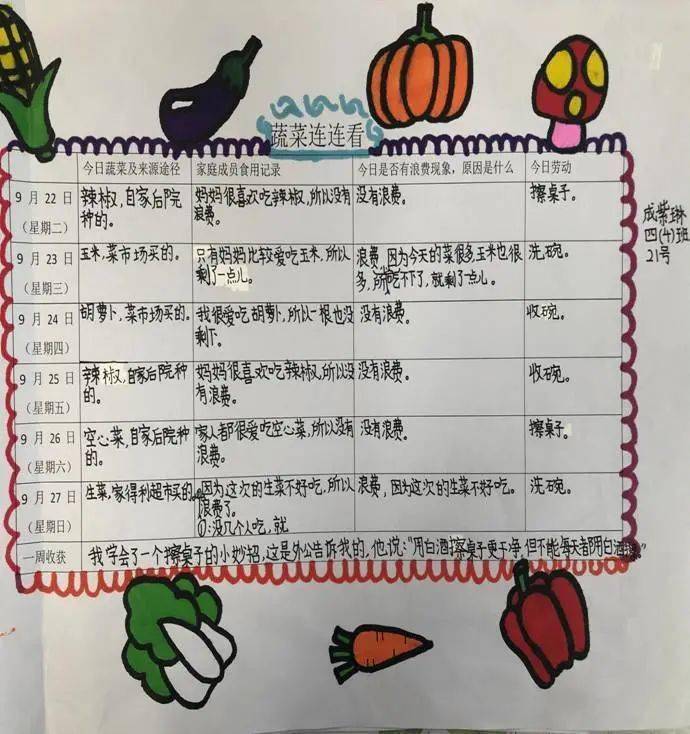 蔬菜连连看
今日蔬菜及来源途径 家庭成员食用记录 今日是否有浪费现象，原因是什么 今日劳动
9 月 22 日
（星期二）
辣椒，自家后院
种的。
妈妈很喜欢吃辣椒，所以没有
浪费。
没有浪费。
擦桌子。
9 月 23 日
（星期三）
玉米，菜市场买的。
只有妈妈比较爱吃玉米，所以
剩了一点儿。
浪费，因为今天的菜很多，玉米也很
多，所吃不下了，就剩了一点儿。
洗碗。
9 月 24 日
（星期四）
胡萝卜，菜市场买的。
我很爱吃胡萝卜，所以一根也没
剩下。
没有浪费。
收碗。
9 月 25 日
（星期五）
辣椒，自家后院种
的。
妈妈很喜欢吃辣椒，所以没
有浪费。
没有浪费。
收碗。
9 月 26 日
（星期六）
空心菜，自家后院种
的。
家人都很爱吃空心菜，所以没有
浪费。
没有浪费。
擦桌子。
9 月 27 日
（星期日）
生菜，家得利超市买的。
因为这次的生菜不好吃，所以
浪费了。
①：没几个人吃，就
浪费，因为这次的生菜不好吃。
洗碗。
一周收获
我学会了一个擦桌子的小妙招，这是外公告诉我的，他说：“用白酒擦桌子更干净，但不能每天都用白酒
成紫琳
四(4)班
21号